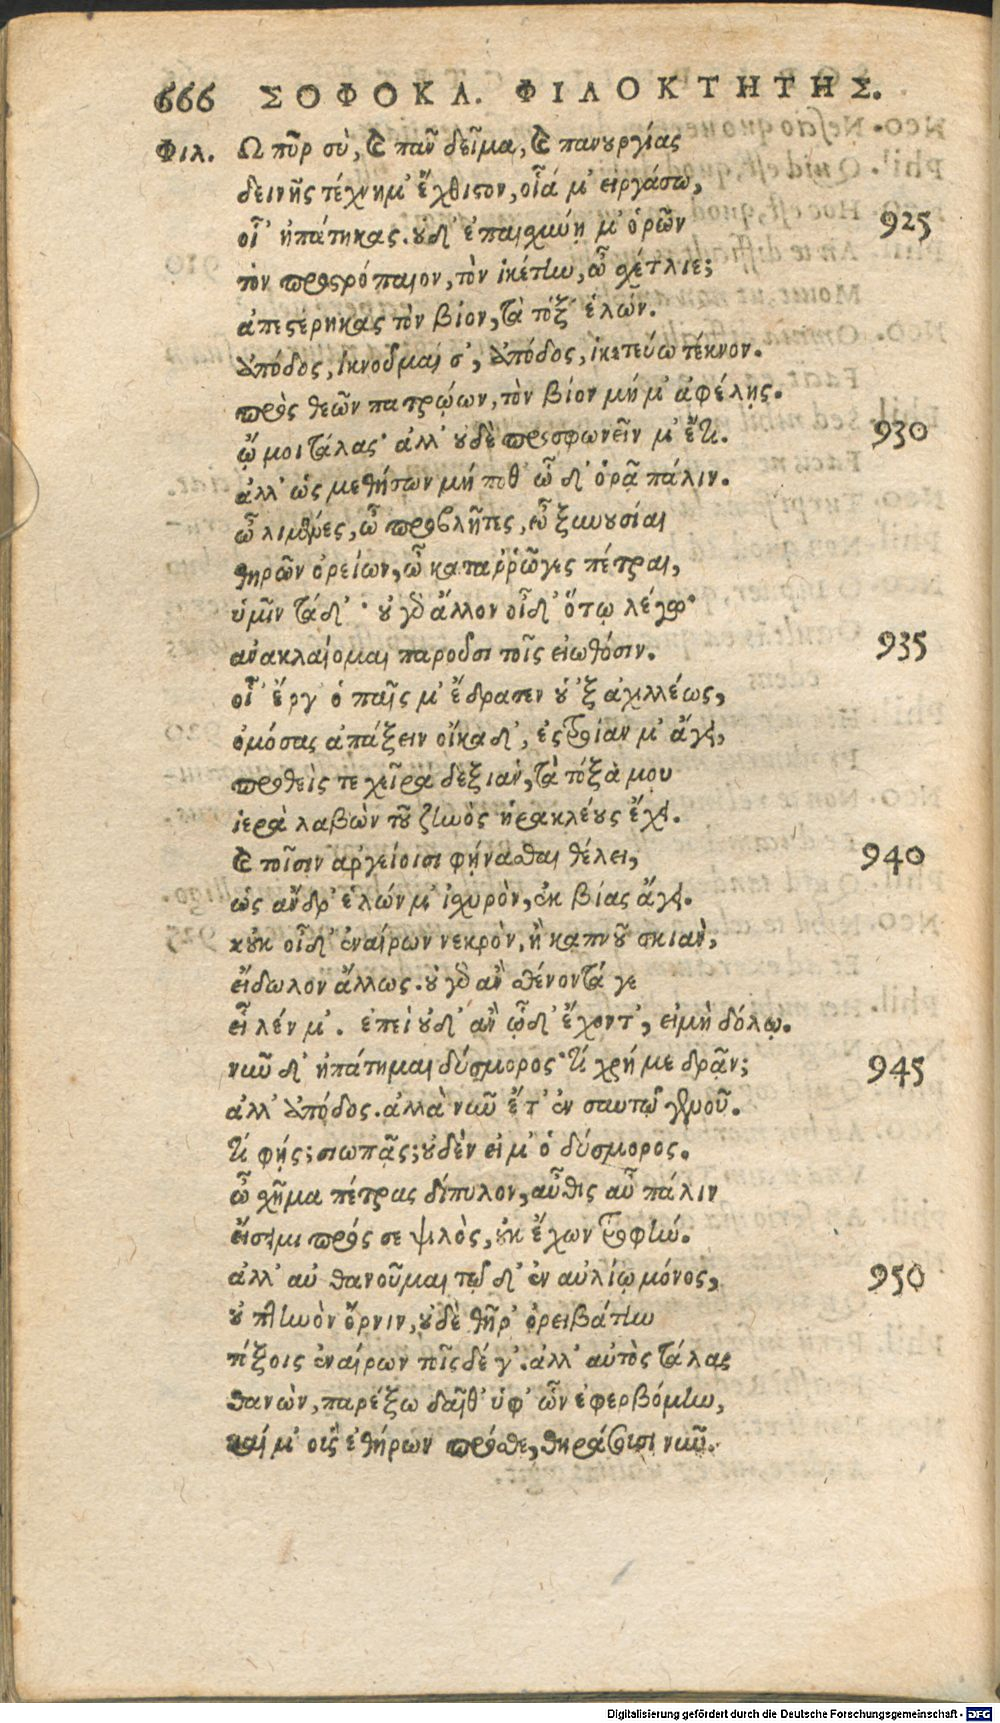 666 ΣΟΦΟΚΛ. ΦΙΛΟΚΤΗΤΗΣ.
Φιλ. Ω πῦρ σὺ, καὶ πᾶν δεῖμα, καὶ πανουργίας
δεινῆς τέχνημ' ἔχθιστον, οἷά μ' ειργάσω,
οἷ' ἠπάτηκας. οὐδ' ἐπαισχιύῃ μ' ὁρῶν 925
τὸν προςρόπαιον, τὸν ἱκέτην, ὦ σχέτλιε;
ἀπεςέρηκας τὸν βίον, τὰ τόξ' ἑλών.
ἀπόδος, ἱκνοῦμαί σ', ἀπόδος, ἱκετεύω τέκνον.
πρὸς θεῶν πατρῴων, τὸν βίον μή μ' ἀφέλῃς.
ᾤμοι τάλας· ἀλλ' οὐδὲ προσφωνεῖν μ' ἔτι. 930
ἀλλ' ὡς μεθήσων μή ποθ' ὧδ' ὁρᾷ πάλιν.
ὦ λιμένες, ὦ προβλῆτες, ὦ ξυνουσίαι
θηρῶν ὀρείων, ὦ καταῤῥῶγες πέτραι,
ὑμῖν τάδ'· οὐ γὰρ ἄλλον οἶδ' ὅτῳ λέγω·
ἀνακλαίομαι παροῦσι τοῖς εἰωθόσιν. 935
οἷ' ἔργ' ὁ παῖς μ' ἔδρασεν οὑ'ξ ἀχιλλέως,
ὀμόσας ἀπάξειν οἴκαδ', ἐς τροίαν μ' ἄγει,
προθείς τε χεῖρα δεξιὰν, τὰ τόξα μου
ἱερὰ λαβὼν τοῦ ζηνὸς ἡρακλέους ἔχει.
καὶ τοῖσιν ἀργείοισι φήνασθαι θέλει, 940
ὡς ἄνδρ' ἑλών μ' ἰσχυρὸν, ἐκ βίας ἄγει.
κοὐκ οἶδ' ἐναίρων νεκρὸν, ἢ καπνοῦ σκιὰν,
εἴδωλον ἄλλως. οὐ γὰρ ἂν σθένοντά γε
εἷλέν μ'. ἐπεὶ οὐδ' ἂν ᾧδ' ἔχοντ', εἰ μὴ δόλῳ.
νῦν δ' ἠπάτημαι δύσμορος· τί χρή με δρᾷν; 945
ἀλλ' ἀπόδος. ἀλλὰ νῦν ἔτ' ἐν σαυτῷ γενοῦ.
τί φῄς; σιωπᾷς; οὐδέν εἰμ' ὁ δύσμορος.
ὦ σχῆμα πέτρας δίπυλον, αὖθις αὖ πάλιν
εἴσειμι πρός σε ψιλὸς, οὐκ ἔχων τροφήν.
ἀλλ' αὖ θανοῦμαι τῷδ' ἐν αὐλίῳ μόνος, 950
οὐ πτηνὸν ὄρνιν, οὐδὲ θῆρ' ὀρειβάτην
τόξοις ἐναίρων τοῖςδέ γ'. ἀλλ' αὐτὸς τάλας
θανὼν, παρέξω δαῖθ' ὑφ' ὧν ἐφερβόμην,
καί μ' οὓς ἐθήρων πρόσθε, θηράσουσι νῦν.
Digitalisierung gefördert durch die Deutsche Forschungsgemeinschaft - DFG